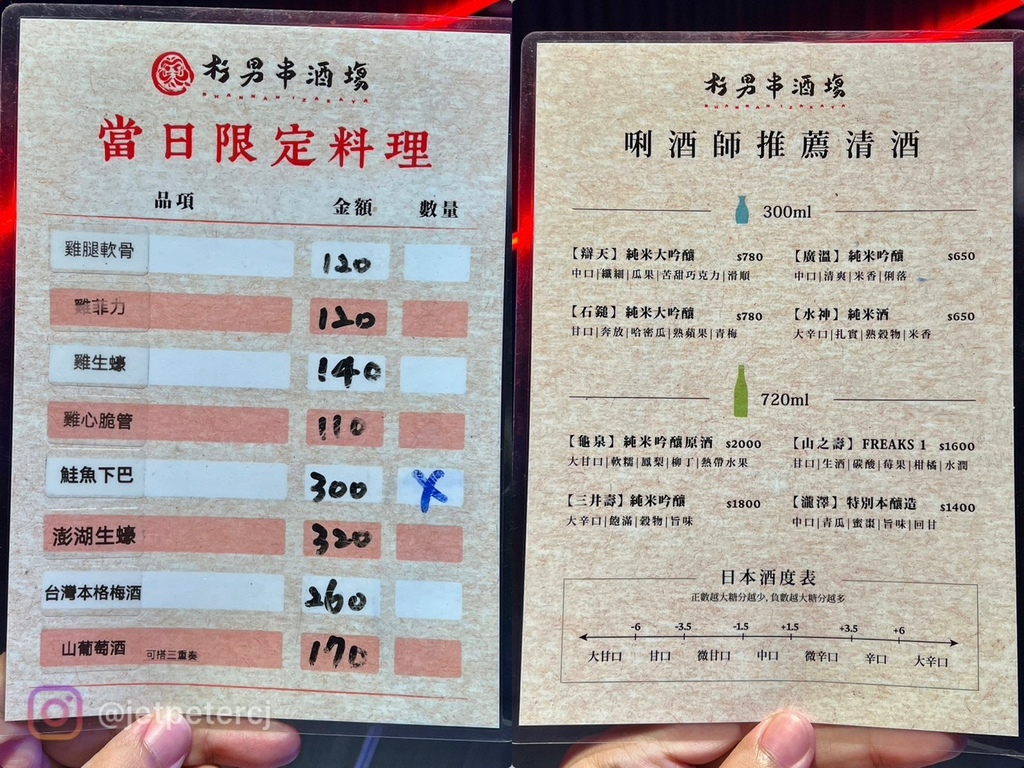 杉男串酒場
SHANNAN IZAKAYA
當日限定料理
品項 金額 數量
雞腿軟骨 120
雞菲力 120
雞生蠔 140
雞心脆管 110
鮭魚下巴 300 X
澎湖生蠔 320
台灣本格梅酒 260
山葡萄酒 可搭三重奏 170
@jetpetercj
杉男串酒場
SHANNAN IZAKAYA
唎酒師推薦清酒
300ml
【辯天】純米大吟釀 $780
中口|纖細|瓜果|苦甜巧克力|滑順
【廣溫】純米吟釀 $650
中口|清爽|米香|俐落
【石鎚】純米大吟釀 $780
甘口|奔放|哈密瓜|熟蘋果|青梅
【水神】純米酒 $650
大辛口|扎實|熟穀物|米香
720ml
【龜泉】純米吟釀原酒 $2000
大甘口|軟糯|鳳梨|柳丁|熱帶水果
【山之壽】FREAKS 1 $1600
甘口|生酒|碳酸|莓果|柑橘|水潤
【三井壽】純米吟釀 $1800
大辛口|飽滿|穀物|旨味
【瀧澤】特別本釀造 $1400
中口|青瓜|蜜棗|旨味|回甘
日本酒度表
正數越大糖分越少,負數越大糖分越多
-6 -3.5 -1.5 +1.5 +3.5 +6
大甘口 甘口 微甘口 中口 微辛口 辛口 大辛口